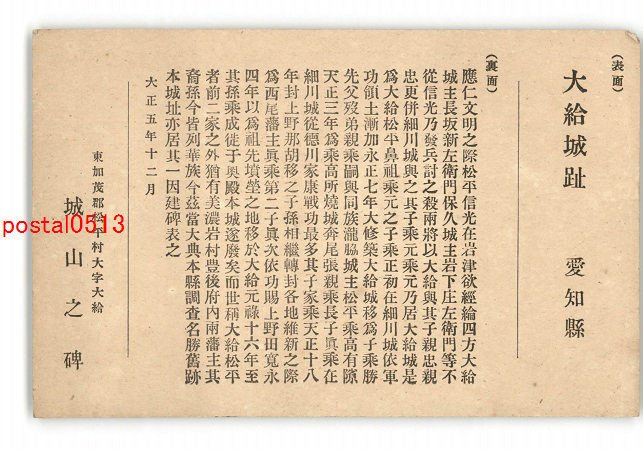 (表面)
大給城趾 愛知縣
(裏面)
應仁文明之際松平信光在岩津欲經綸四方大給
城主長坂新左衛門保久城主岩下庄左衛門等不
從信光乃發兵討之殺兩將以大給與其子親忠親
忠更併細川城與之其子乘元乘元乃居大給城是
爲大給松平鼻祖乘元之子乘正初在細川城依軍
功領土漸加永正七年大修築大給城移爲子乘勝
先父歿弟親乘嗣與同族瀧脇城主松平乘高有隙
天正三年爲乘高所燒城奔尾張親乘長子眞乘在
細川城從德川家康戰功最多其子家乘天正十八
年封上野那胡移之子孫相繼轉封各地維新之際
爲西尾藩主眞乘第二子眞次依功賜上野田寬永
四年以爲祖先墳塋之地移於大給元祿十六年至
其孫乘成徙于奧殿本城遂廢矣而世稱大給松平
者前二家之外猶有美濃岩村豐後府內兩藩主其
裔孫今皆列華族今茲當大典本縣調查名勝舊跡
本城址亦居其一因建碑表之
大正五年十二月
東加茂郡松平村大字大給
城山之碑
postal0513